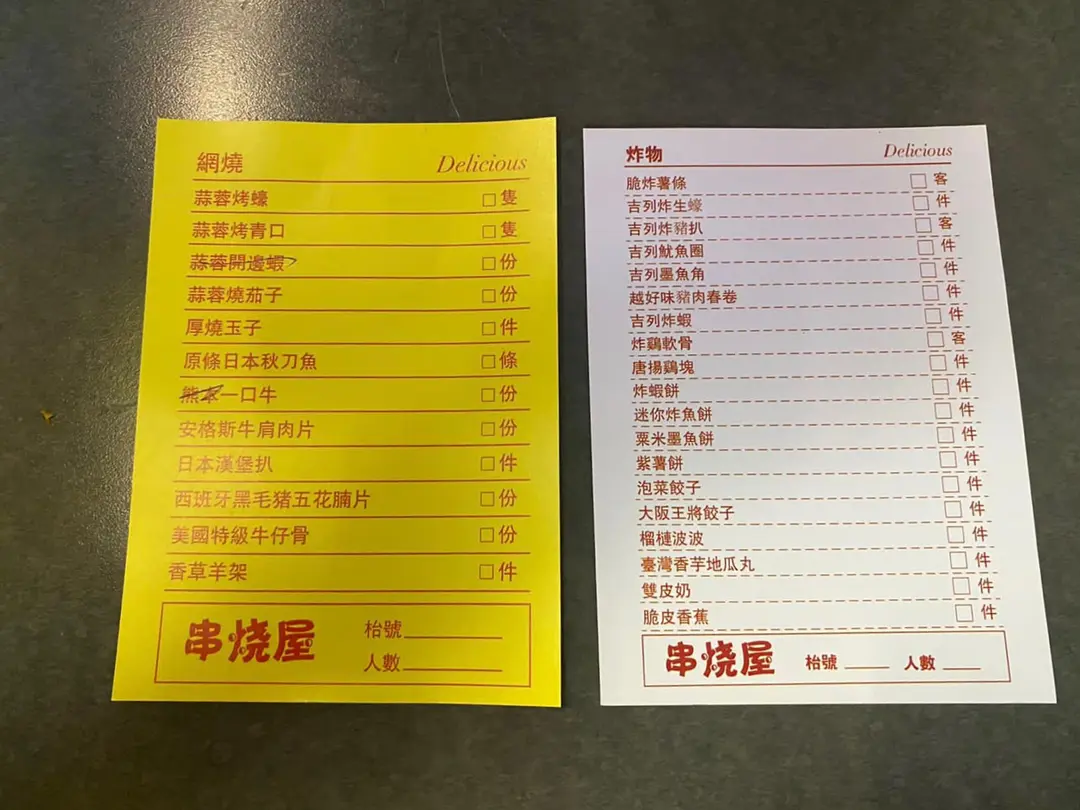 網燒 Delicious
蒜蓉烤蠔 □隻
蒜蓉烤青口 □隻
蒜蓉開邊蝦 □份
蒜蓉燒茄子 □份
厚燒玉子 □件
原條日本秋刀魚 □條
熊本一口牛 □份
安格斯牛肩肉片 □份
日本漢堡扒 □件
西班牙黑毛猪五花腩片 □份
美國特級牛仔骨 □份
香草羊架 □件
串烧屋
枱號
人數
炸物 Delicious
脆炸薯條 □客
吉列炸生蠔 □件
吉列炸豬扒 □客
吉列魷魚圈 □件
吉列墨魚角 □件
越好味豬肉春卷 □件
吉列炸蝦 □件
炸鷄軟骨 □客
唐揚鷄塊 □件
炸蝦餅 □件
迷你炸魚餅 □件
粟米墨魚餅 □件
紫薯餅 □件
泡菜餃子 □件
大阪王將餃子 □件
榴槤波波 □件
臺灣香芋地瓜丸 □件
雙皮奶 □件
脆皮香蕉 □件
串烧屋 枱號 人數